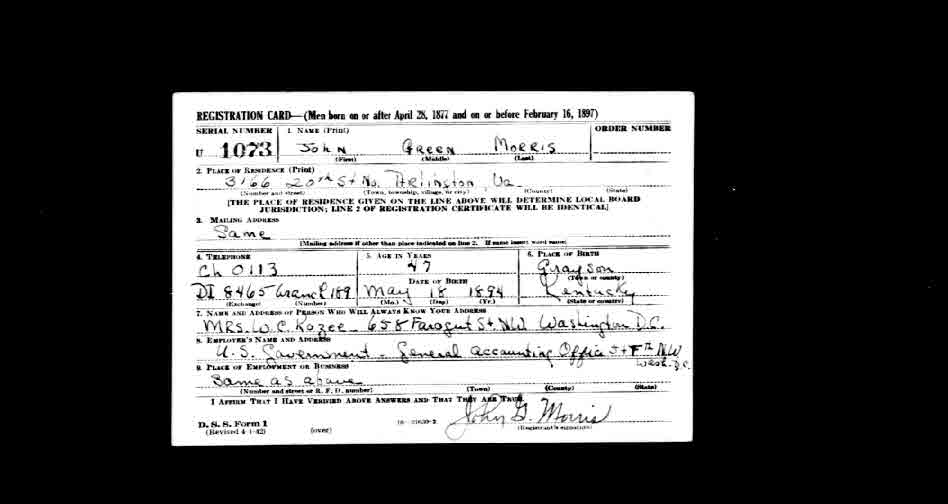 REGISTRATION CARD—(Men born on or after April 28, 1877 and on or before February 16, 1897)
SERIAL NUMBER 1. NAME (Print) ORDER NUMBER
U 1073 John Green Morris
(First) (Middle) (Last)
2. PLACE OF RESIDENCE (Print)
3166 20th St No. Arlington, Va.
(Number and street) (Town, township, village, or city) (County) (State)
[THE PLACE OF RESIDENCE GIVEN ON THE LINE ABOVE WILL DETERMINE LOCAL BOARD
JURISDICTION; LINE 2 OF REGISTRATION CERTIFICATE WILL BE IDENTICAL]
3. MAILING ADDRESS
Same
[Mailing address if other than place indicated on line 2. If same insert word same]
4. TELEPHONE 5. AGE IN YEARS 6. PLACE OF BIRTH
Ch 0113 47 Grayson
(Town or county)
DATE OF BIRTH
DI 8465 Branch 189 May 18 1894 Kentucky
(Exchange) (Number) (Mo.) (Day) (Yr.) (State or country)
7. NAME AND ADDRESS OF PERSON WHO WILL ALWAYS KNOW YOUR ADDRESS
MRS. W. C. Kozee - 658 Farogut St. NW Washington D.C.
8. EMPLOYER'S NAME AND ADDRESS
U.S. Government - General Accounting Office 5th F St NW
Wash. D.C.
9. PLACE OF EMPLOYMENT OR BUSINESS
Same as above
(Number and street or R. F. D. number) (Town) (County) (State)
I AFFIRM THAT I HAVE VERIFIED ABOVE ANSWERS AND THAT THEY ARE TRUE.
John G. Morris
D. S. S. Form 1 16—21630-2 (Registrant's signature)
(Revised 4-1-42) (over)